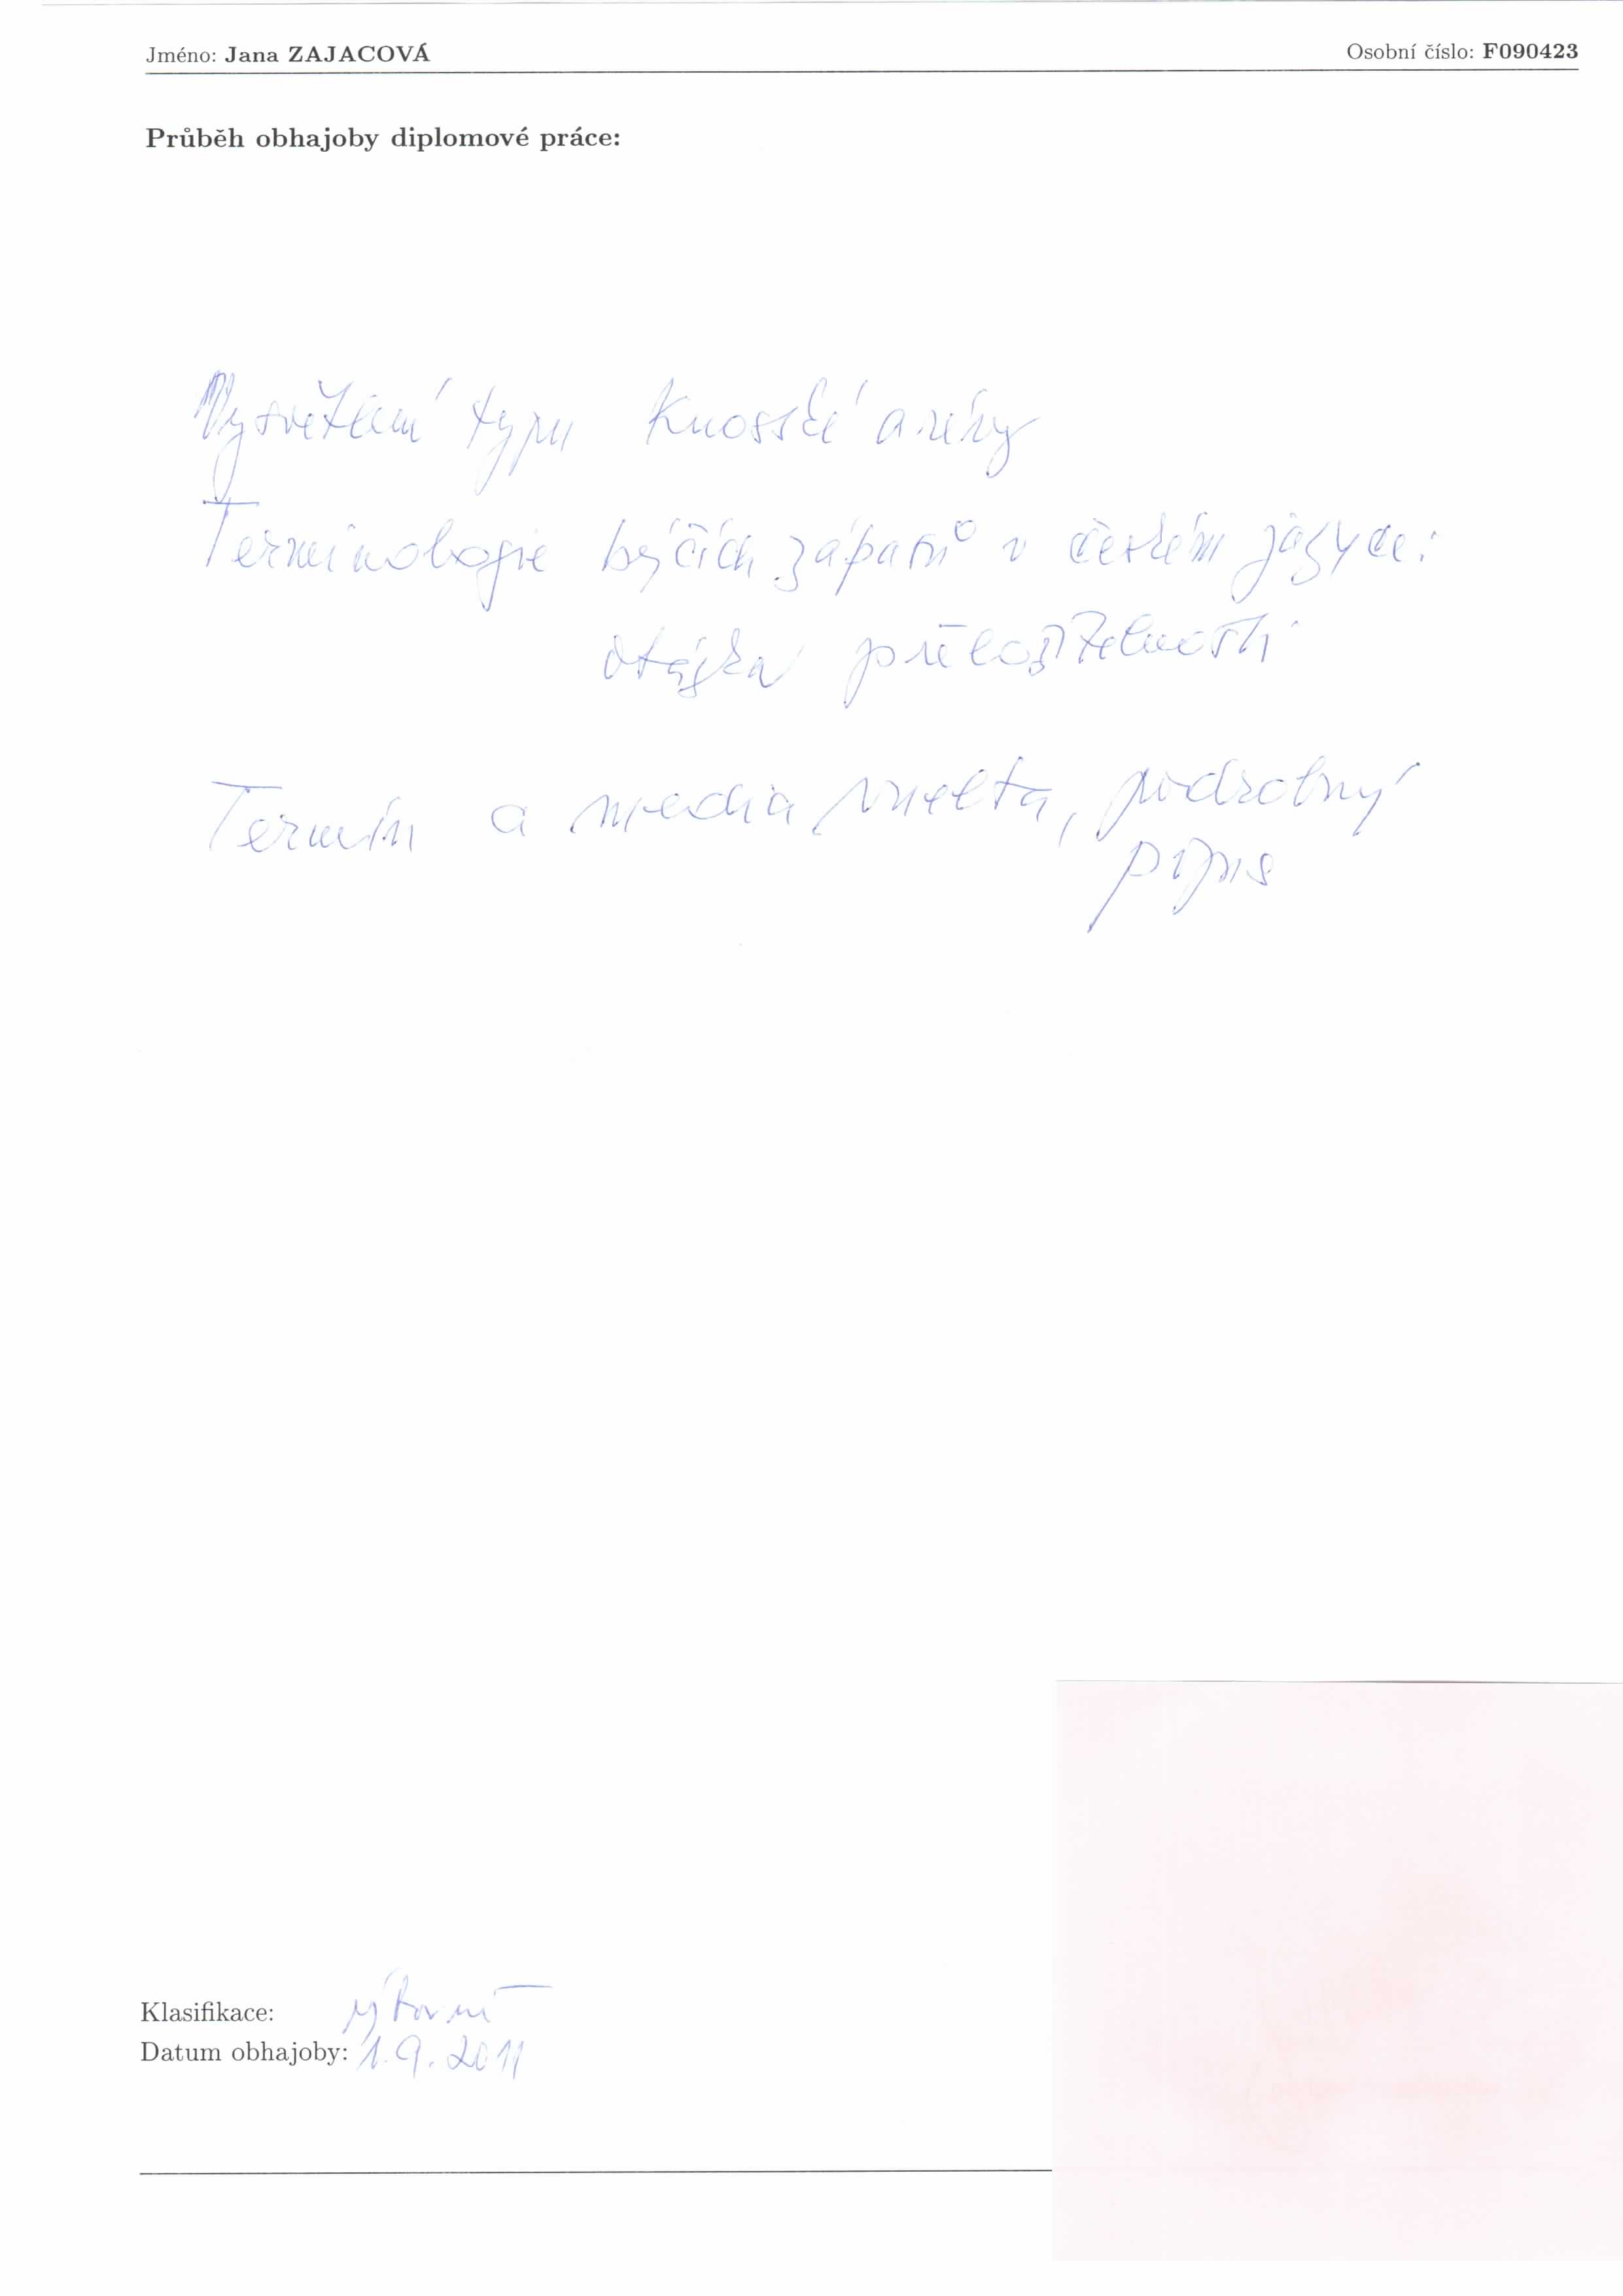 Jméno: Jana ZAJACOVÁ Osobní číslo: F090423
Průběh obhajoby diplomové práce:
Vysvětlení typu Knosské arény
Terminologie býčích zápasů v českém jazyce:
otázka přeložitelnosti
Termín a media vuelta, podrobný
popis
Klasifikace: výborně
Datum obhajoby: 1.9.2011